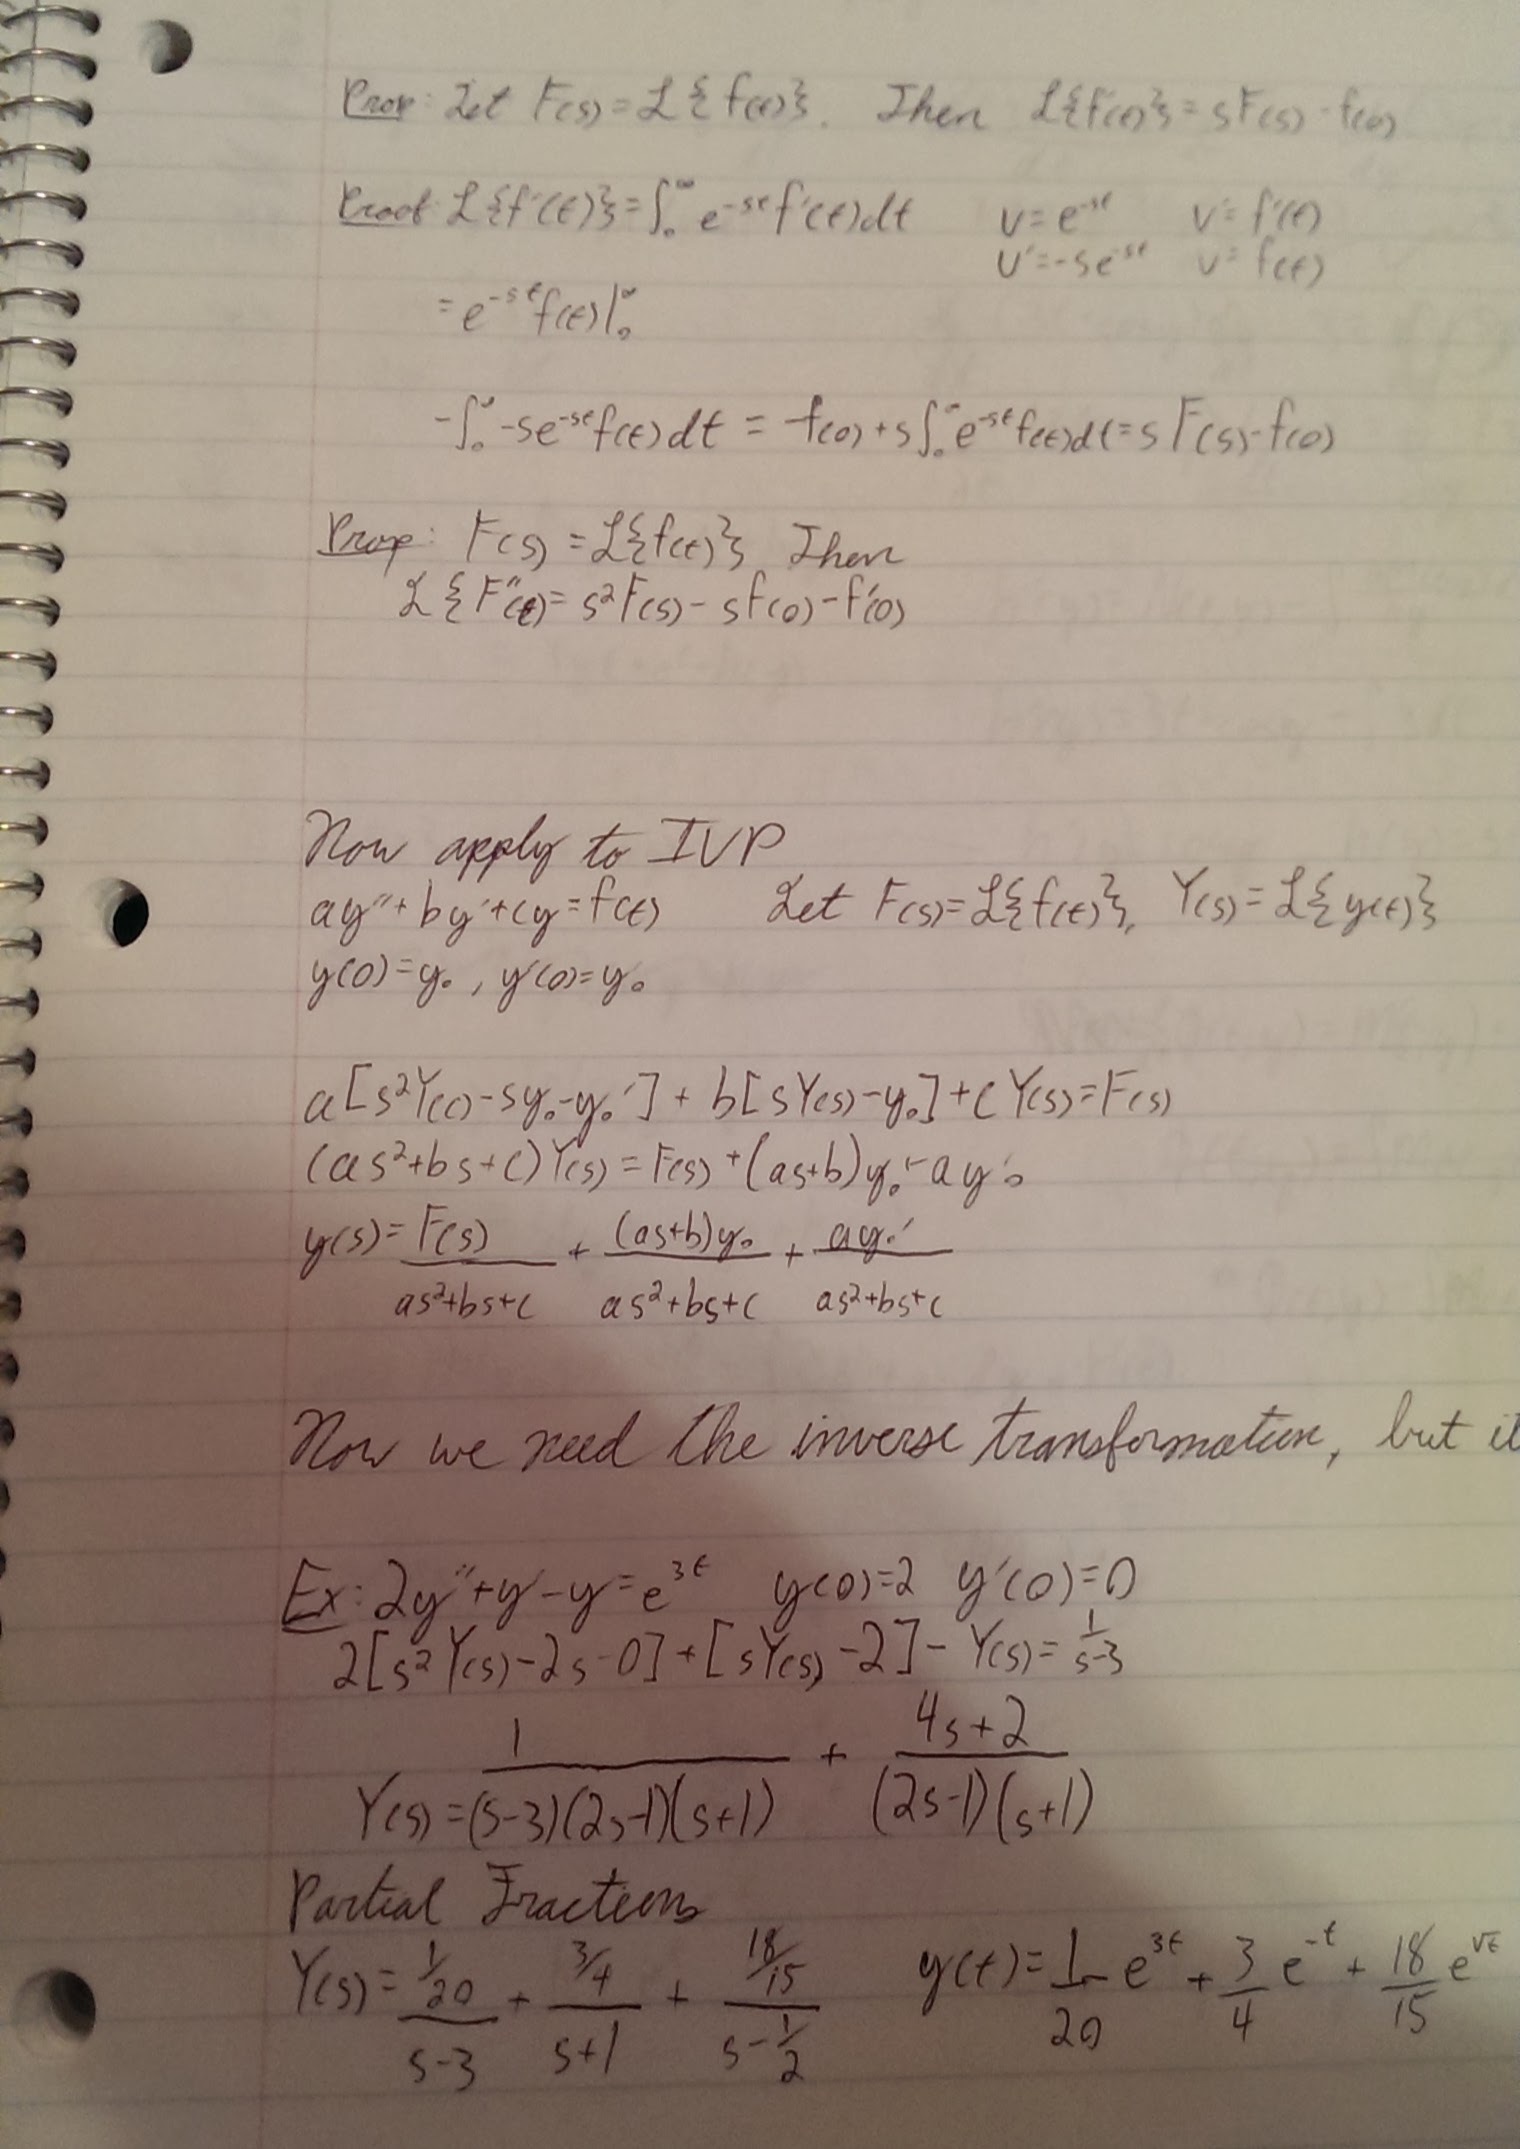 Prop: Let F(s) = ℒ{f(t)}. Then ℒ{f'(t)} = sF(s) - f(0)
Proof: ℒ{f'(t)} = ∫₀^∞ e^{-st} f'(t)dt    u = e^{-st}    v' = f'(t)
u' = -se^{-st}    v = f(t)
= e^{-st} f(t)|₀^∞
-∫₀^∞ -se^{-st} f(t)dt = -f(0) + s∫₀^∞ e^{-st} f(t)dt = sF(s) - f(0)
Prop: F(s) = ℒ{f(t)} Then
ℒ{F''(t) = s²F(s) - sf(0) - f'(0)
Now apply to IVP
ay'' + by' + cy = f(t)    Let F(s) = ℒ{f(t)}, Y(s) = ℒ{y(t)}
y(0) = y₀, y'(0) = y₀
a[s²Y(s) - sy₀ - y₀'] + b[sY(s) - y₀] + cY(s) = F(s)
(as² + bs + c)Y(s) = F(s) + (as+b)y₀ - ay'₀
y(s) = F(s)/(as²+bs+c) + (as+b)y₀/(as²+bs+c) + ay₀'/(as²+bs+c)
Now we need the inverse transformation, but it
Ex: 2y'' + y' - y = e^{3t}    y(0)=2    y'(0)=0
2[s²Y(s) - 2s - 0] + [sY(s) - 2] - Y(s) = 1/(s-3)
Y(s) = 1/((s-3)(2s-1)(s+1)) + (4s+2)/((2s-1)(s+1))
Partial Fractions
Y(s) = (1/20)/(s-3) + (3/4)/(s+1) + (18/15)/(s-1/2)    y(t) = 1/20 e^{3t} + 3/4 e^{-t} + 18/15 e^{√t}